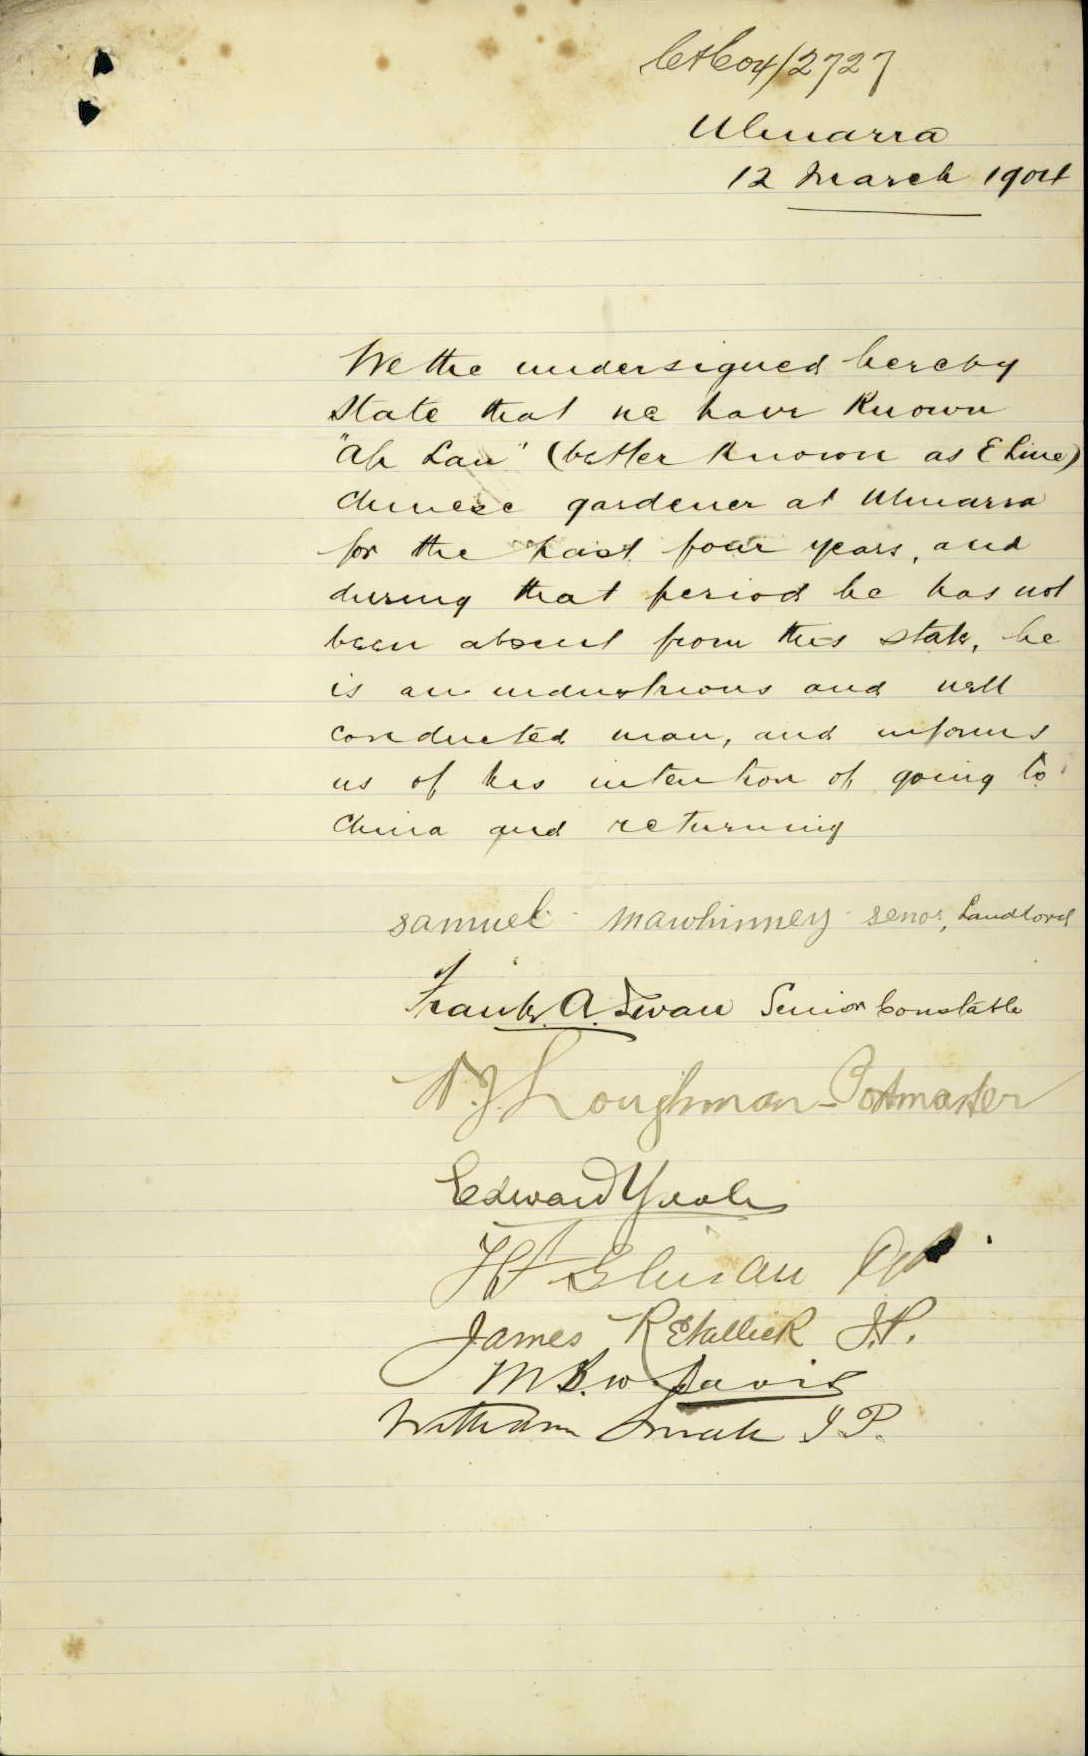 C&C04/2727
Ulmarra
12 March 1904
We the undersigned hereby
state that we have known
"Ah Lau" (better known as E Line)
Chinese gardener at Ulmarra
for the past four years, and
during that period he has not
been absent from this state, he
is an industrious and well
conducted man, and informs
us of his intention of going to
China and returning
samuel mawhinney senor, Landlord
Frank. A. Swan Senior Constable
J. Loughman - Postmaster
Edward
James Retallick J.P.
M B. W. Davis
William Small J P.